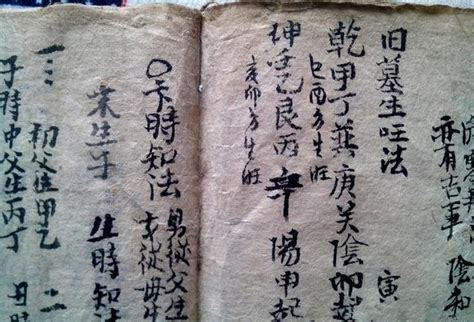 亦有古軍 陰和
旧墓生旺法 寅
乾甲丁巽庚癸陰卯
巳酉方生旺
坤壬乙艮丙辛陽申起
亥卯方生旺
〇卡時知法 男從父生
女從母生
未生子 生時知法
三 初父位甲乙 二
子時中父生丙丁 丑時